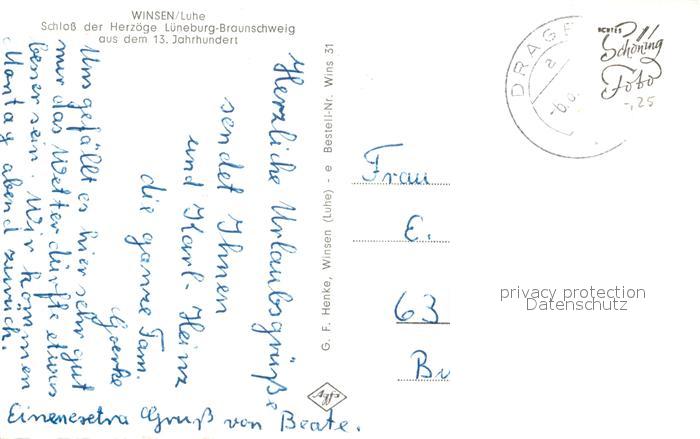 WINSEN/Luhe
Schloß der Herzöge Lüneburg-Braunschweig
aus dem 13. Jahrhundert
Herzliche Urlaubsgrüße
sendet Ihnen
und Karl-Heinz
die ganze Fam.
Goerke
Uns gefällt es hier sehr gut
nur das Wetter dürfte etwas
besser sein. Wir kommen
Montag abend zurück.
Einenextra Gruß von Beate.
G. F. Henke, Winsen (Luhe) - e Bestell-Nr. Wins 31
Agfa
DRAGE
a
ECHTES
Schöning
Foto
-,25
Frau
E.
63
privacy protection
Datenschutz